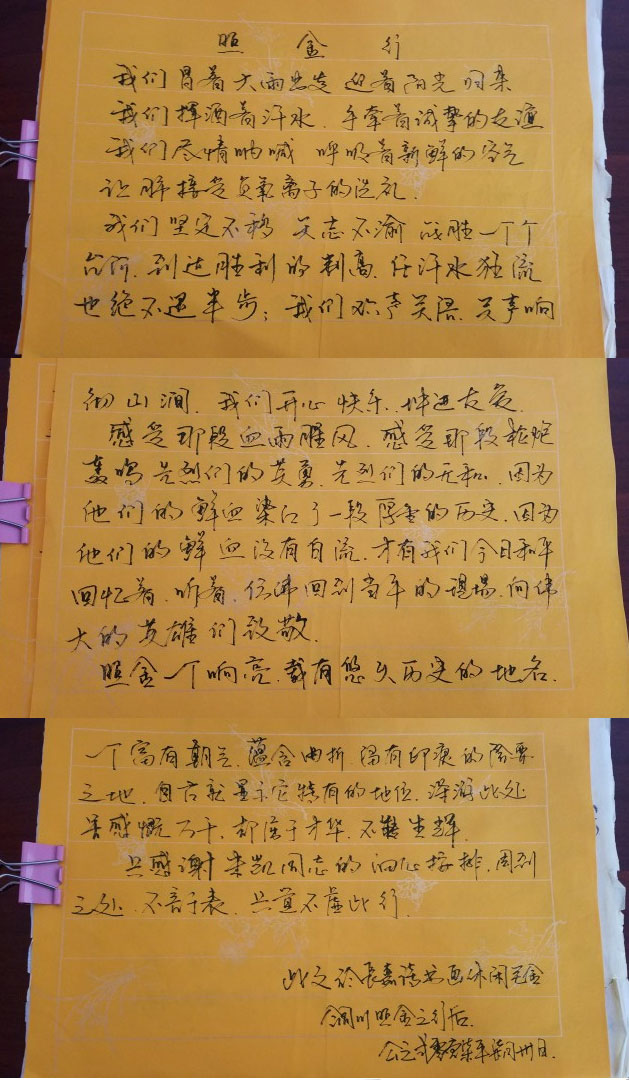 照金行
我们冒着大雨出发 迎着阳光归来
我们挥洒着汗水、手牵着诚挚的友谊
我们尽情呐喊 呼吸着新鲜的空气
让肺接受负氧离子的洗礼.
我们坚定不移 矢志不渝 战胜一个个
台阶、到达胜利的制高、任汗水狂流
也绝不退半步; 我们欢声笑语、笑声响
彻山涧、我们开心快乐、增进友爱.
感受那段血雨腥风、感受那段枪炮
轰鸣 先烈们的英勇、先烈们的无私、因为
他们的鲜血染红了一段厚重的历史、因为
他们的鲜血没有白流、才有我们今日和平
回忆着、听着、仿佛回到当年的现场、向伟
大的英雄们致敬.
照金一个响亮、载有悠久历史的地名.
一个富有朝气、蕴含曲折、留有印痕的险要
之地、自古就显示它特有的地位、深游此处
皆感慨万千、却信于才华、不 生辉.
只感谢 凯同志的 心接排、周到
之处、不言于表、只道不虚此行.
此文於长嘉 书画休闲 会
铜川照金之行后.
公元 月卅日.